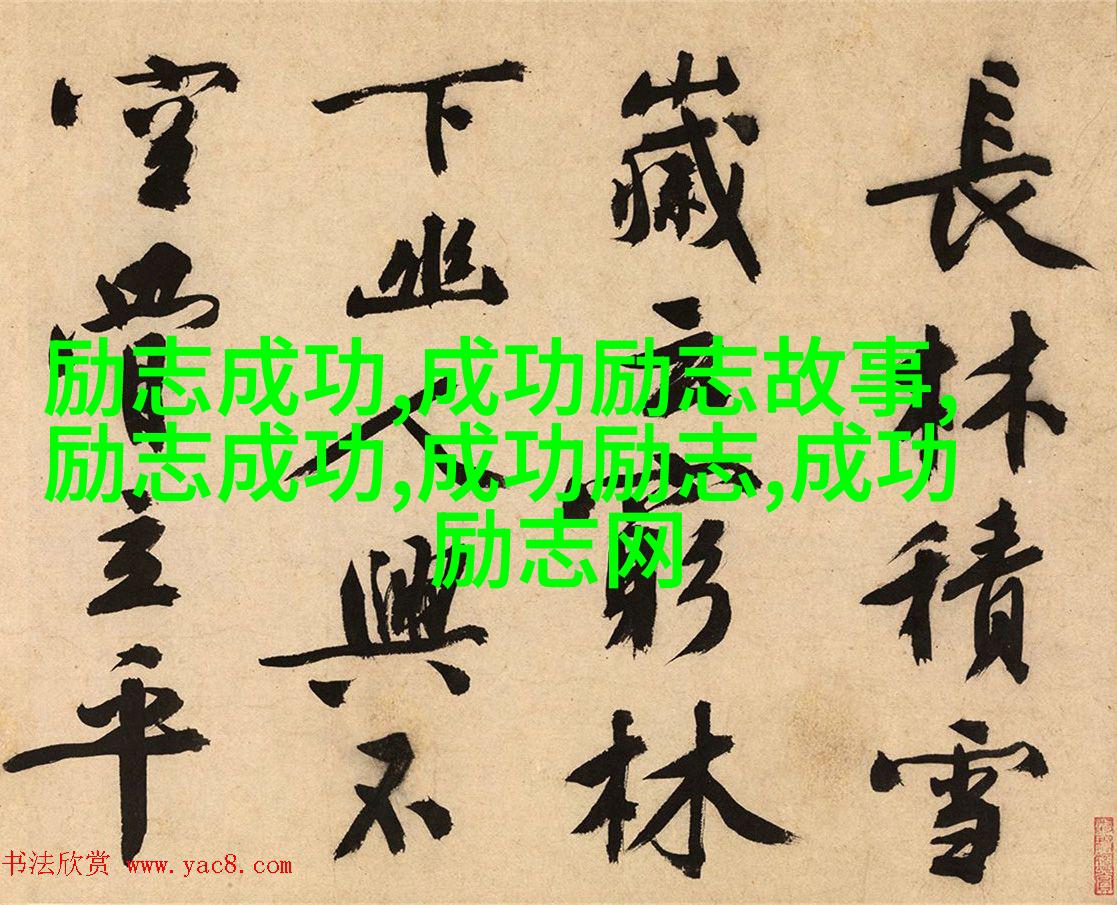 長林積雪
歲云窮林
下幽人興不
空立平
励志成功,成功励志故事,
励志成功,成功励志,成功
励志网
书法欣赏 www.yac8.com